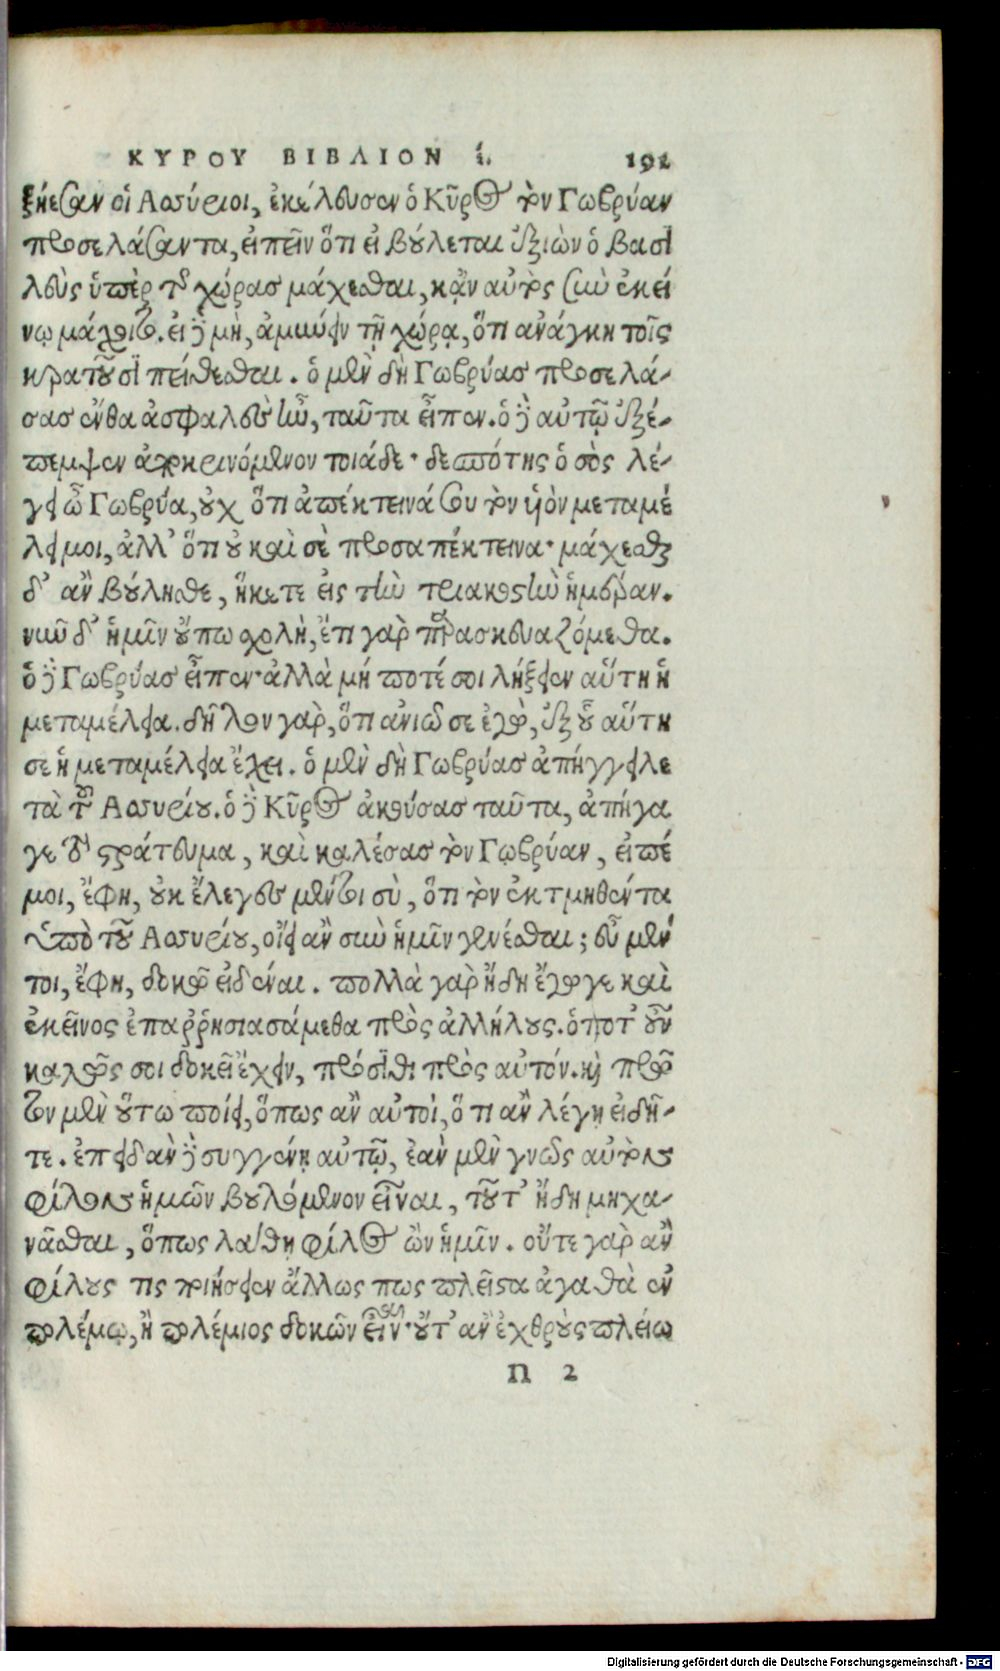 ΚΥΡΟΥ ΒΙΒΛΙΟΝ έ. 191
ξῄεσαν οἱ Ἀσσύριοι, ἐκέλευσεν ὁ Κῦρος τὸν Γωβρύαν
προσελάσαντα, εἰπεῖν ὅτι εἰ βούλεται ἐξιὼν ὁ βασι
λεὺς ὑπὲρ τῆς χώρας μάχεσθαι, κἂν αὐτὸς σὺν ἐκεί
νῳ μάχοιτο. εἰ δὲ μὴ, ἀμυνεῖν τῇ χώρᾳ, ὅτι ἀνάγκη τοῖς
κρατοῦσι πείθεσθαι. ὁ μὲν δὴ Γωβρύας προσελά-
σας ἔνθα ἀσφαλὲς ἦν, ταῦτα εἶπεν. ὁ δὲ αὐτῷ ἐξέ-
πεμψεν ἀποκρινόμενον τοιάδε· δεσπότης ὁ σὸς λέ-
γει ὦ Γωβρύα, οὐχ ὅτι ἀπέκτεινά σου τὸν υἱὸν μεταμέ
λει μοι, ἀλλ' ὅτι οὐ καὶ σὲ προσαπέκτεινα· μάχεσθαι
δ' ἂν βούλησθε, ἥκετε εἰς τὴν τριακοστὴν ἡμέραν.
νῦν δ' ἡμῖν οὔπω σχολὴ, ἔτι γὰρ παρασκευαζόμεθα.
ὁ δὲ Γωβρύας εἶπεν· ἀλλὰ μή ποτέ σοι λήξειεν αὕτη ἡ
μεταμέλεια. δῆλον γὰρ, ὅτι ἀνιῶ σε ἐγὼ, ἐξ οὗ αὕτη
σε ἡ μεταμέλεια ἔχει. ὁ μὲν δὴ Γωβρύας ἀπήγγειλε
τὰ τοῦ Ἀσσυρίου. ὁ δὲ Κῦρος ἀκούσας ταῦτα, ἀπήγα
γε τὸ στράτευμα, καὶ καλέσας τὸν Γωβρύαν, εἰπέ
μοι, ἔφη, οὐκ ἔλεγες μέντοι σὺ, ὅτι τὸν ἐκτμηθέντα
ὑπὸ τοῦ Ἀσσυρίου, οἴει ἂν σὺν ἡμῖν γενέσθαι; εὖ μέν
τοι, ἔφη, δοκῶ εἰδέναι. πολλὰ γὰρ ἤδη ἔγωγε καὶ
ἐκεῖνος ἐπαῤῥησιασάμεθα πρὸς ἀλλήλους. ὁπότ' οὖν
καλῶς σοι δοκεῖ ἔχειν, πρόσιθι πρὸς αὐτόν. καὶ πρῶ
τον μὲν οὕτω ποίει, ὅπως ἂν αὐτοὶ, ὅ τι ἂν λέγῃ εἰδῆ-
τε. ἐπειδὰν δὲ συγγένῃ αὐτῷ, ἐὰν μὲν γνῷς αὐτὸν
φίλον ἡμῶν βουλόμενον εἶναι, τοῦτ' ἤδη μηχα-
νᾶσθαι, ὅπως λάθῃ φίλος ὢν ἡμῖν. οὔτε γὰρ ἂν
φίλους τις ποιήσειεν ἄλλως πως πλεῖστα ἀγαθὰ ἐν
πολέμῳ, ἢ πολέμιος δοκῶν εἶναι· οὔτ' ἂν ἐχθροὺς πλείω
Π 2
Digitalisierung gefördert durch die Deutsche Forschungsgemeinschaft - DFG